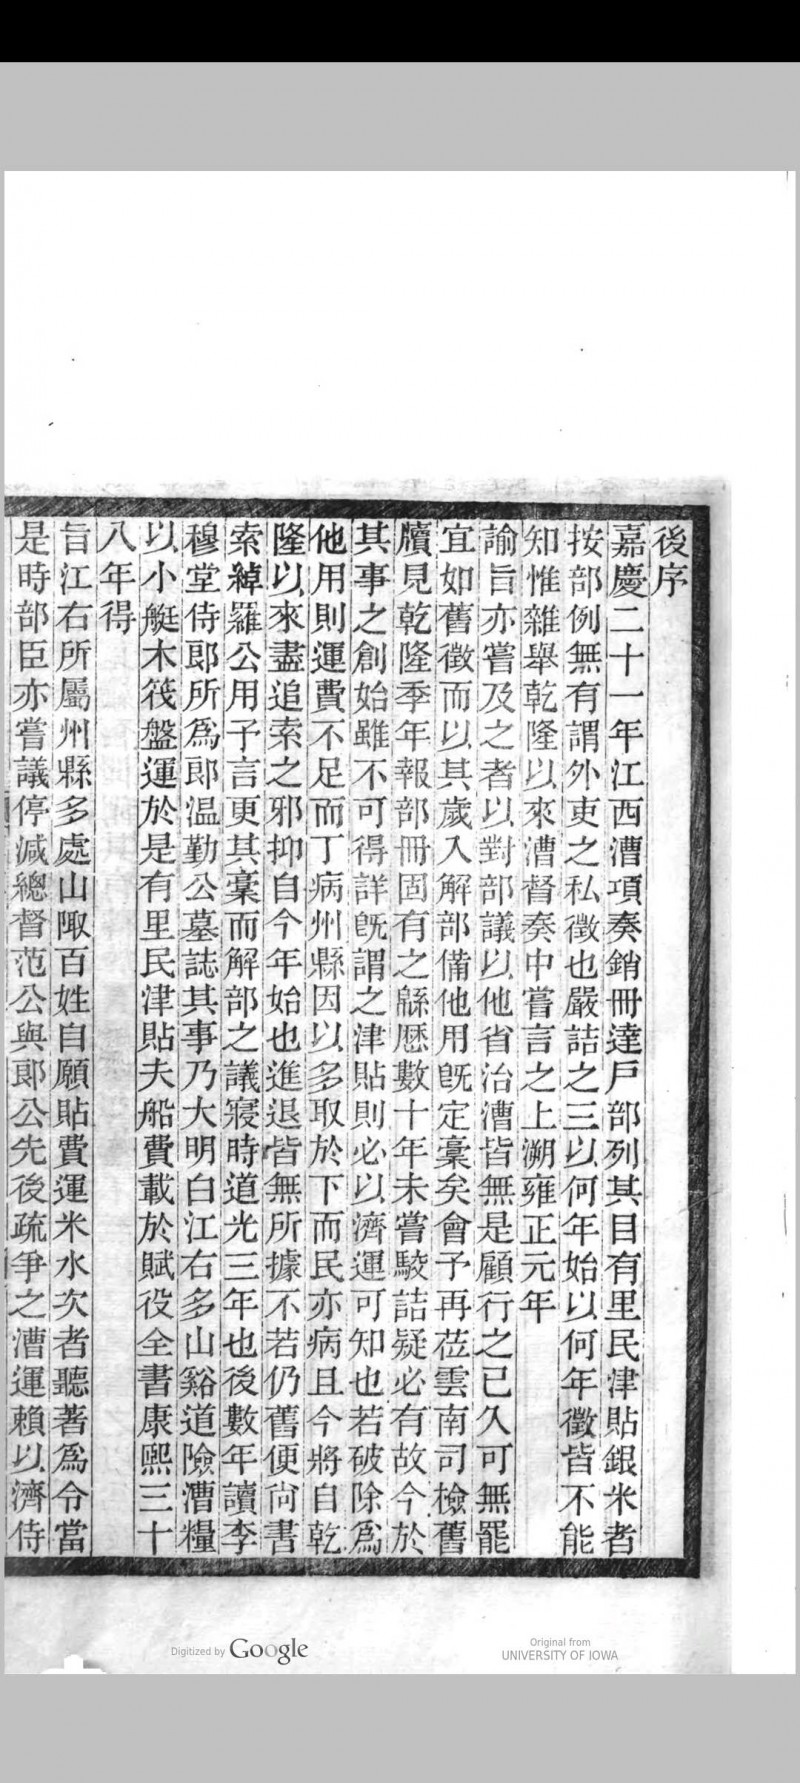 後序
嘉慶二十一年江西漕項奏銷冊達戶部列其目有里民津貼銀米者
按部例無有謂外吏之私徵也嚴詰之三以何年始以何年徵皆不能
知惟雜舉乾隆以來漕督奏中嘗言之上溯雍正元年
諭旨亦嘗及之者以對部議以他省治漕皆無是顧行之已久可無罷
宜如舊徵而以其歲入解部備他用旣定稾矣會予再莅雲南司檢舊
牘見乾隆季年報部冊固有之繇歷數十年未嘗駮詰疑必有故今於
其事之創始雖不可得詳旣謂之津貼則必以濟運可知也若破除爲
他用則運費不足而丁病州縣因以多取於下而民亦病且今將自乾
隆以來盡追索之邪抑自今年始也進退皆無所據不若仍舊便尙書
索綽羅公用予言更其稾而解部之議寢時道光三年也後數年讀李
穆堂侍郎所爲郎温勤公墓誌其事乃大明白江右多山谿道險漕糧
以小艇木筏盤運於是有里民津貼夫船費載於賦役全書康熙三十
八年得
旨江右所屬州縣多處山陬百姓自願貼費運米水次者聽著爲令當
是時部臣亦嘗議停減總督范公與郎公先後疏爭之漕運賴以濟侍
Digitized by Google
Original from
UNIVERSITY OF IOWA